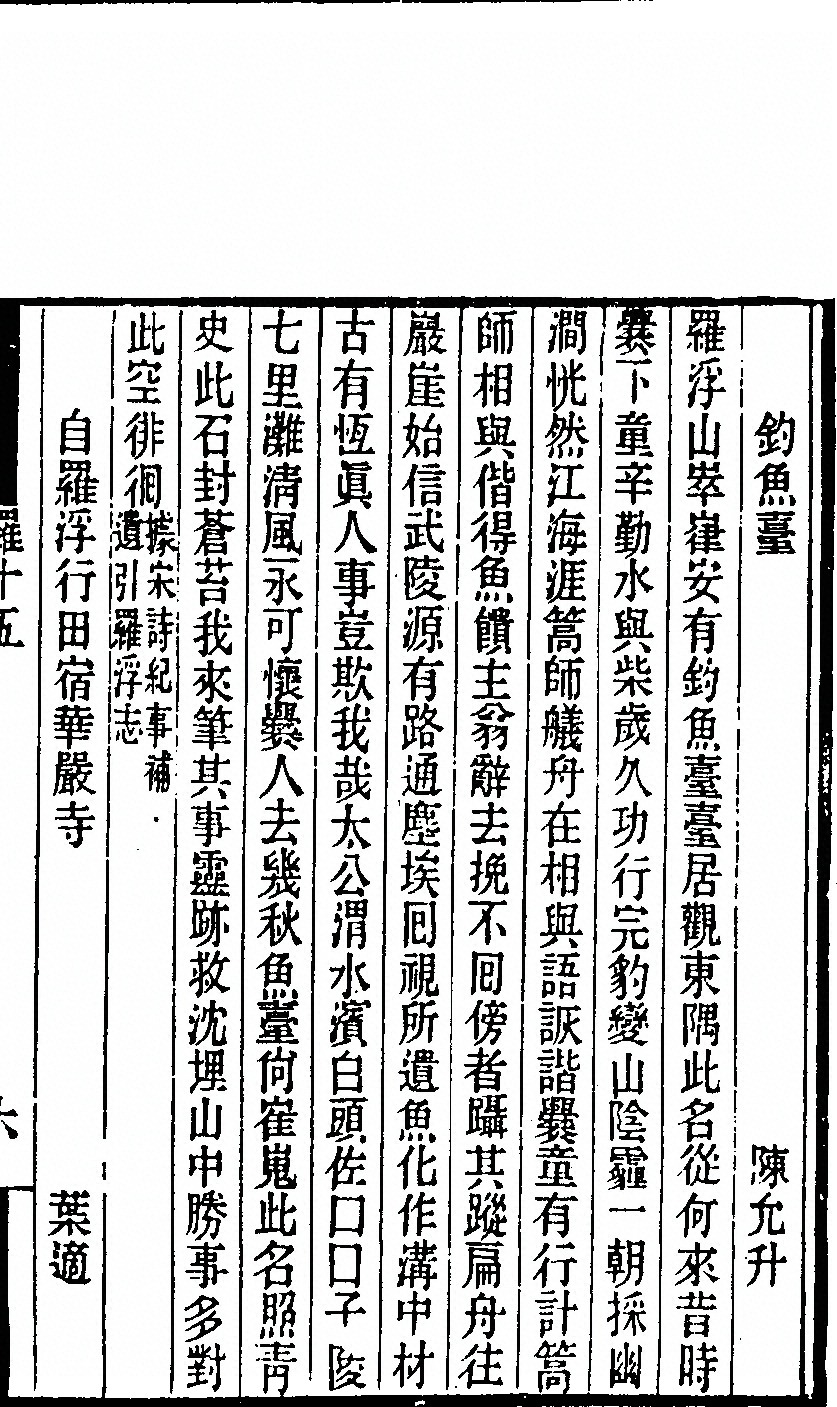 釣魚臺　陳允升
羅浮山崒嵂安有釣魚臺臺居觀東隅此名從何來昔時
爨下童辛勤水與柴歲久功行完豹變山陰霾一朝採幽
澗恍然江海涯篙師艤舟在相與語詼諧爨童有行計篙
師相與偕得魚饋主翁辭去挽不囘傍者躡其蹤扁舟往
巖崖始信武陵源有路通塵埃囘視所遺魚化作溝中材
古有恆眞人事豈欺我哉太公渭水濱白頭佐口口子陵
七里灘清風永可懷爨人去幾秋魚臺尙崔嵬此名照靑
史此石封蒼苔我來筆其事靈跡救沈埋山中勝事多對
此空徘徊據宋詩紀事補
遺引羅浮志
自羅浮行田宿華嚴寺　葉適
羅十五
六